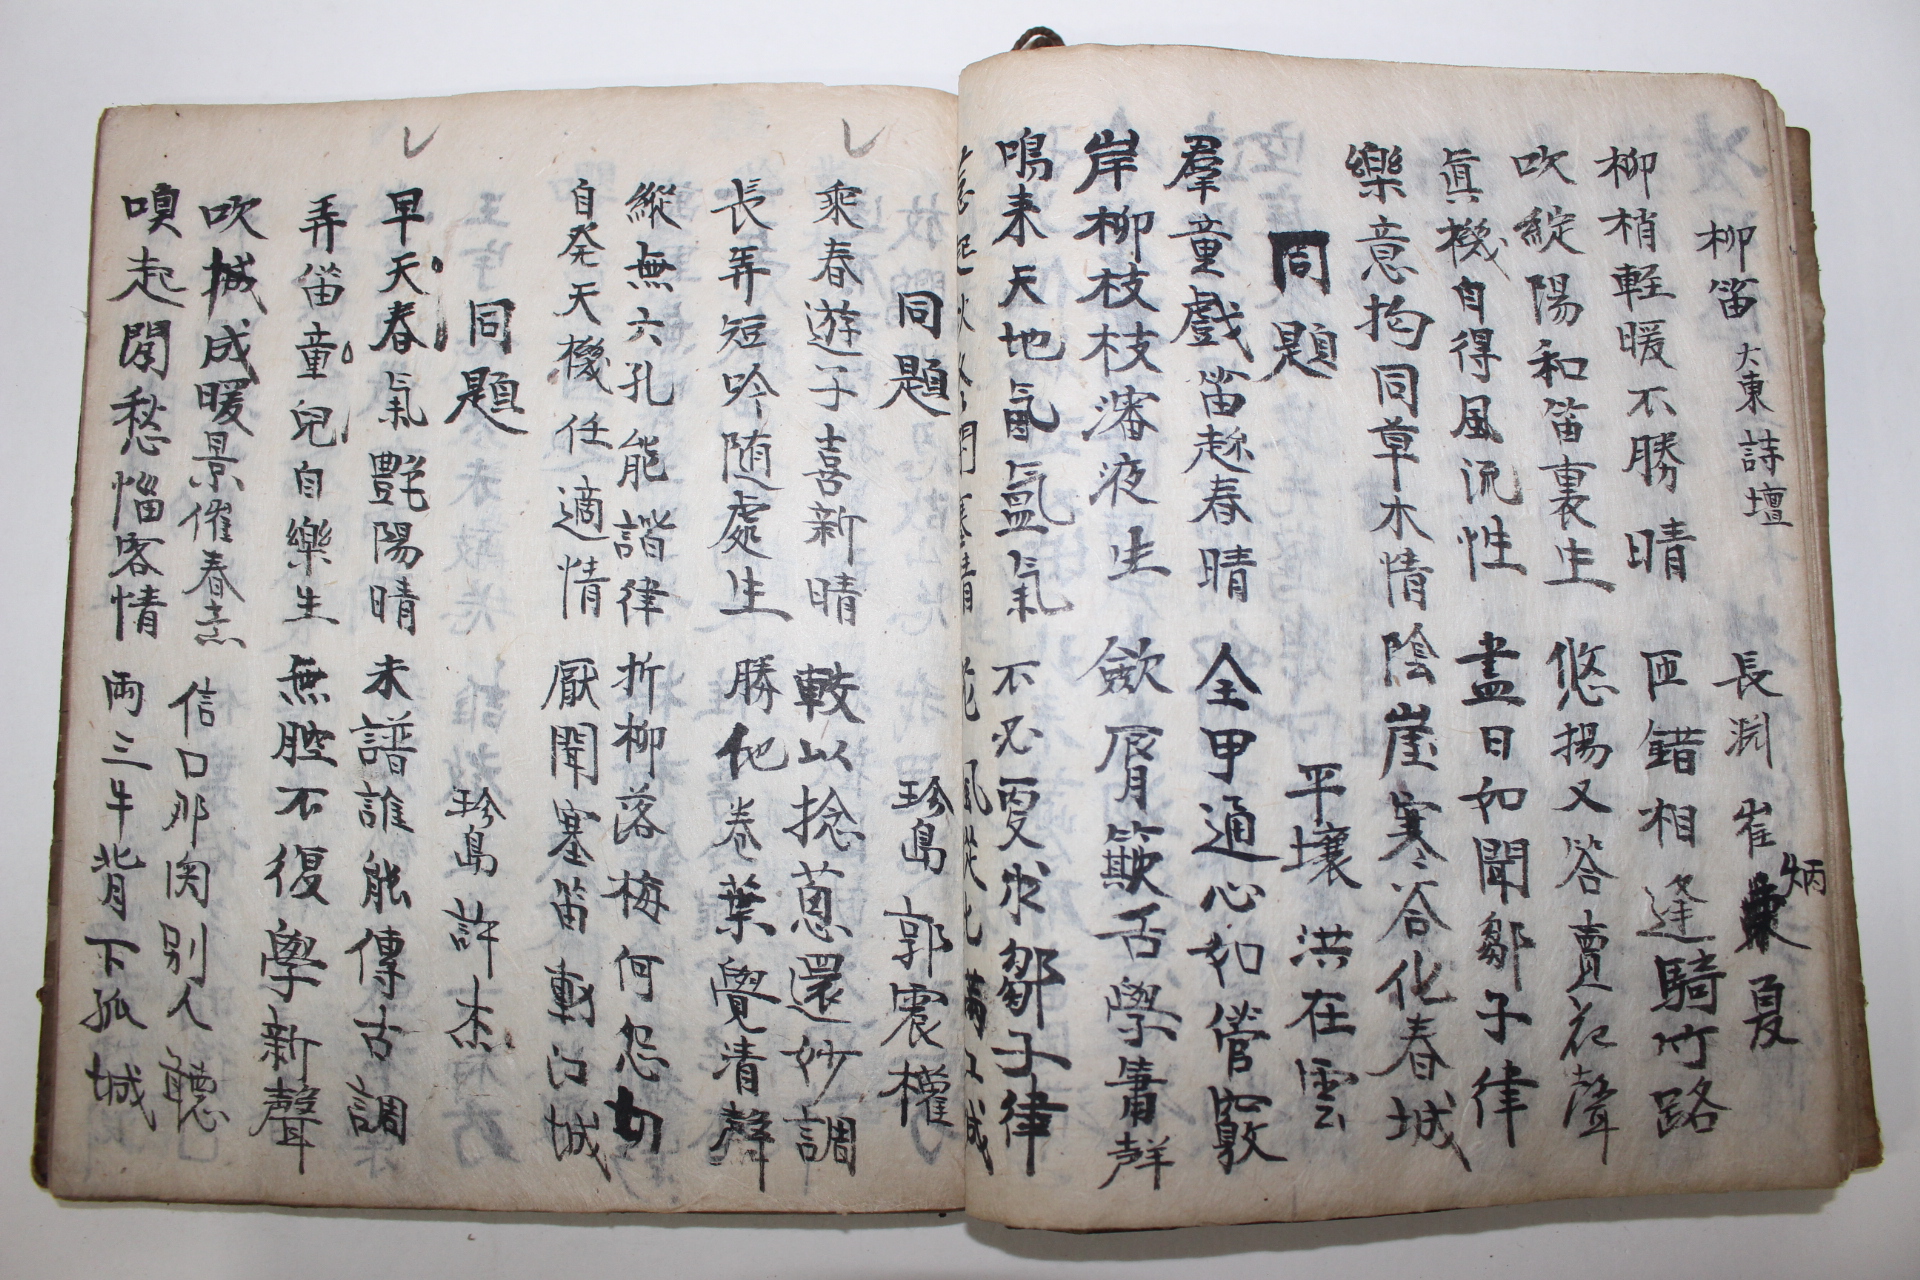 柳笛 大東詩壇 長淵 崔炳夏
柳梢軽暖不勝晴 匝錯相逢騎竹路
吹綻陽和笛裏生 悠揚又答賣花聲
眞機自得風流性 盡日如聞鄒子律
樂意均同草木情 陰崖寒谷化春城
同題 平壤 洪在雲
羣童戱笛趂春晴 全甲通心如管竅
岸柳枝枝瀋液生 歛脣欺舌學簫聲
鳴来天地氤氳氣 不必更求鄒子律
同題 珍島 郭震權
乘春遊子喜新晴 較以捻蔥還妙調
長弄短吟随處生 勝他卷葉覺清聲
縱無六孔能諧律 折柳落梅何怨切
自発天機任適情 厭聞塞笛動江城
同題 珍島 許杰
早天春氣艷陽晴 未譜誰能傳古調
弄笛童兒自樂生 無腔不復學新聲
吹城成暖景催春志 信口那関別人聽
嗅起閑愁惱客情 両三牛背下孤城